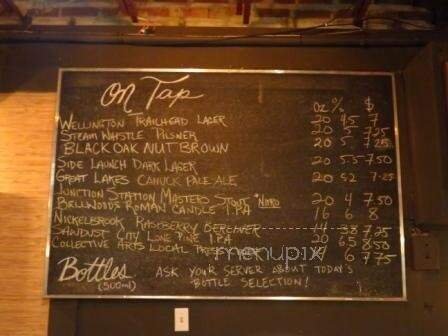 On Tap
oz % $
WELLINGTON TRAILHEAD LAGER 20 4.5 7
STEAM WHISTLE PILSNER 20 5 7.25
BLACK OAK NUT BROWN 20 5 7.25
SIDE LAUNCH DARK LAGER 20 5.5 7.50
GREAT LAKES CANUCK PALE ALE 20 5.2 7.25
JUNCTION STATION MASTERS STOUT *NITRO 20 4 7.50
BELLWOODS ROMAN CANDLE IPA 16 6 8
NICKELBROOK RASPBERRY 14 3.8 7.25
SAWDUST CITY LONE PINE IPA 20 6.5 8.50
COLLECTIVE ARTS LOCAL 6 7.75
menupix
Bottles (500ml)
ASK YOUR SERVER ABOUT TODAY'S
BOTTLE SELECTION!